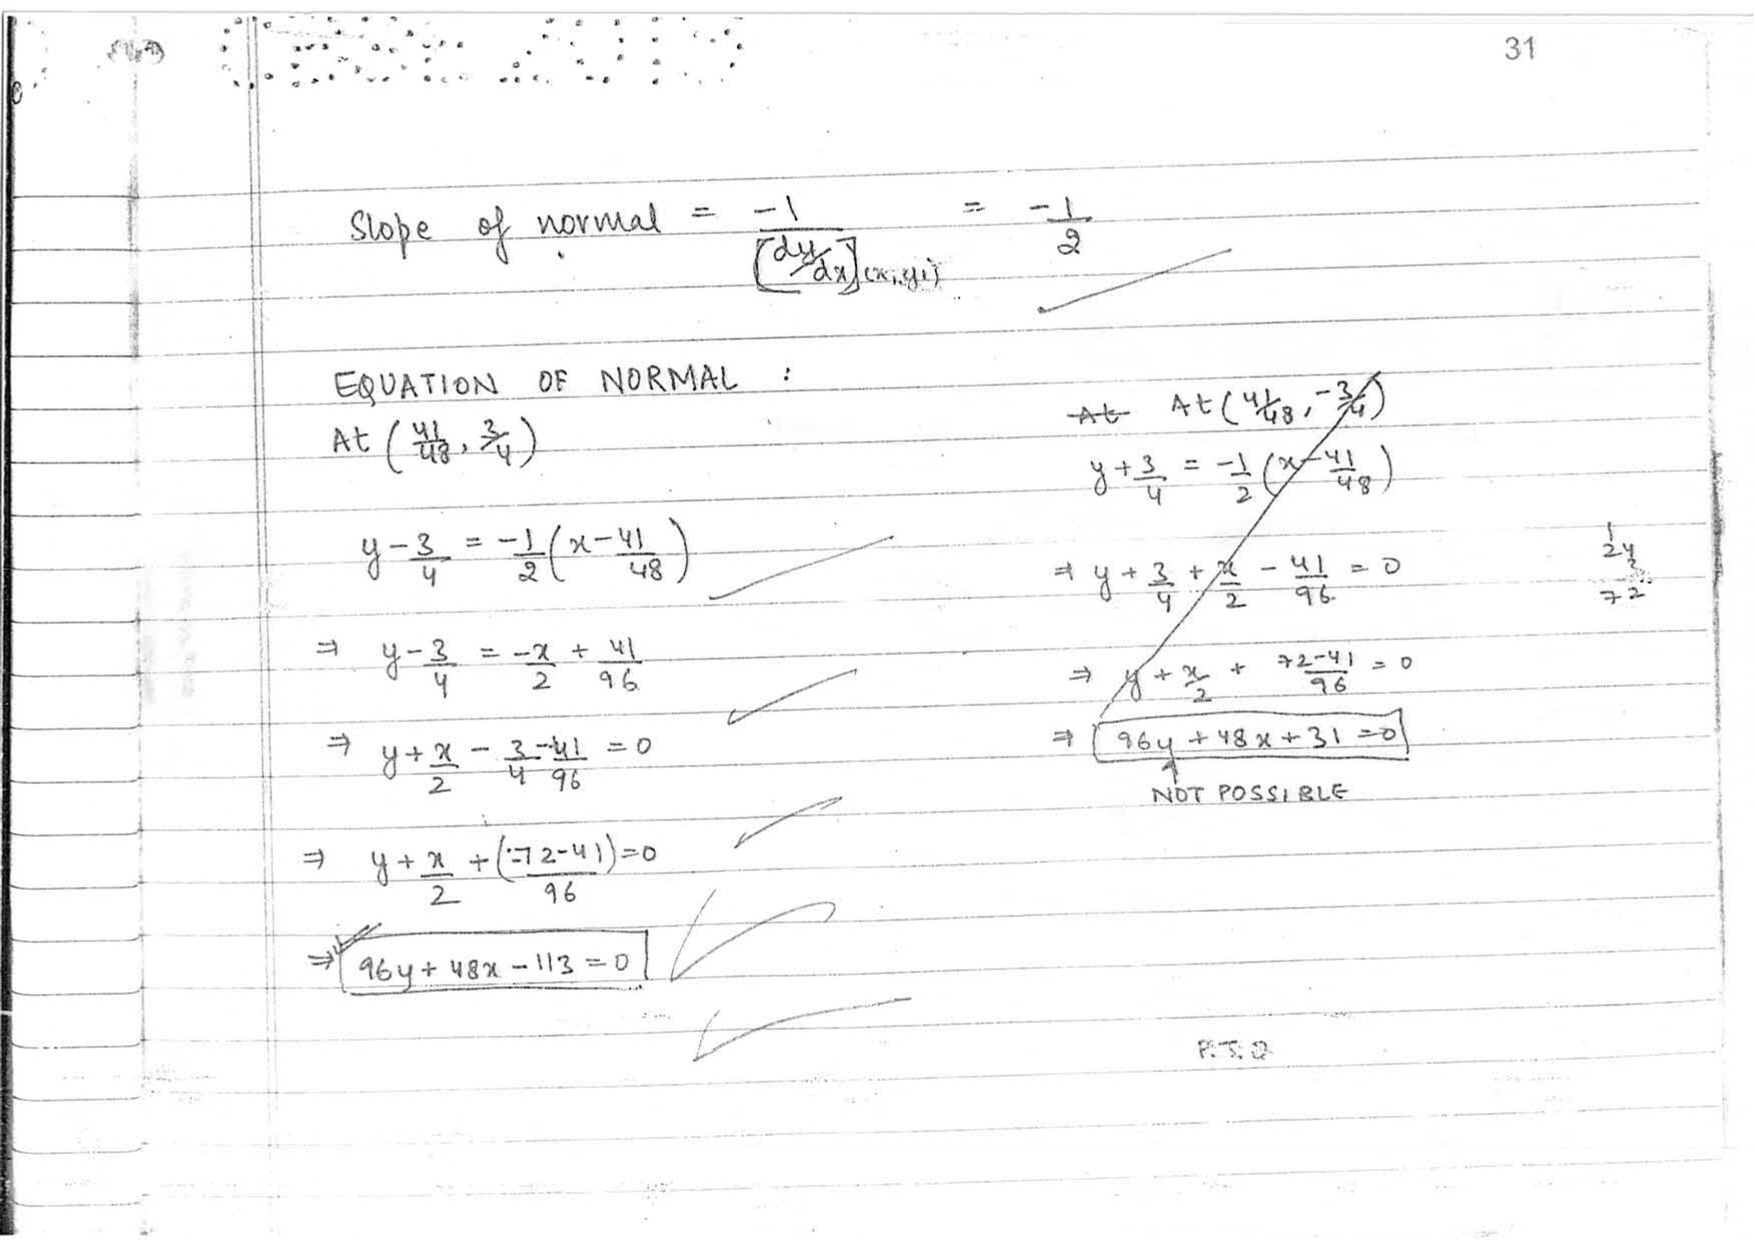 31
Slope of normal = -1/[dy/dx](x1,y1) = -1/2
EQUATION OF NORMAL :
At (41/48, 3/4)
y - 3/4 = -1/2 (x - 41/48)
⇒ y - 3/4 = -x/2 + 41/96
⇒ y + x/2 - 3/4 - 41/96 = 0
⇒ y + x/2 + (-72-41)/96 = 0
⇒ 96y + 48x - 113 = 0
At At (41/48, -3/4)
y + 3/4 = -1/2 (x - 41/48)
⇒ y + 3/4 + x/2 - 41/96 = 0
⇒ y + x/2 + 72-41/96 = 0
⇒ 96y + 48x + 31 = 0
NOT POSSIBLE
1
24
3
72
P.T.O